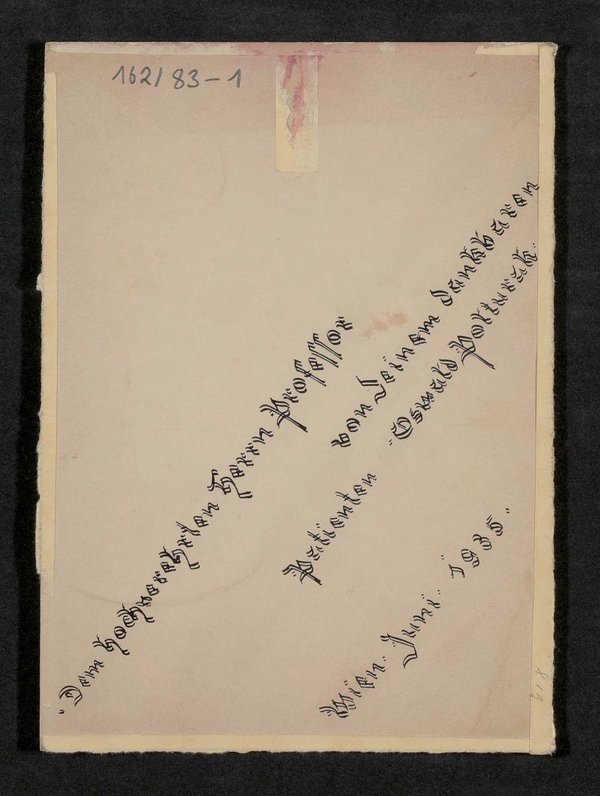 162/83-1
"Dem hochverehrten Herrn Professor
von Seinem dankbaren
Patienten "Oswald
"Wien. Juni. 1935."
618